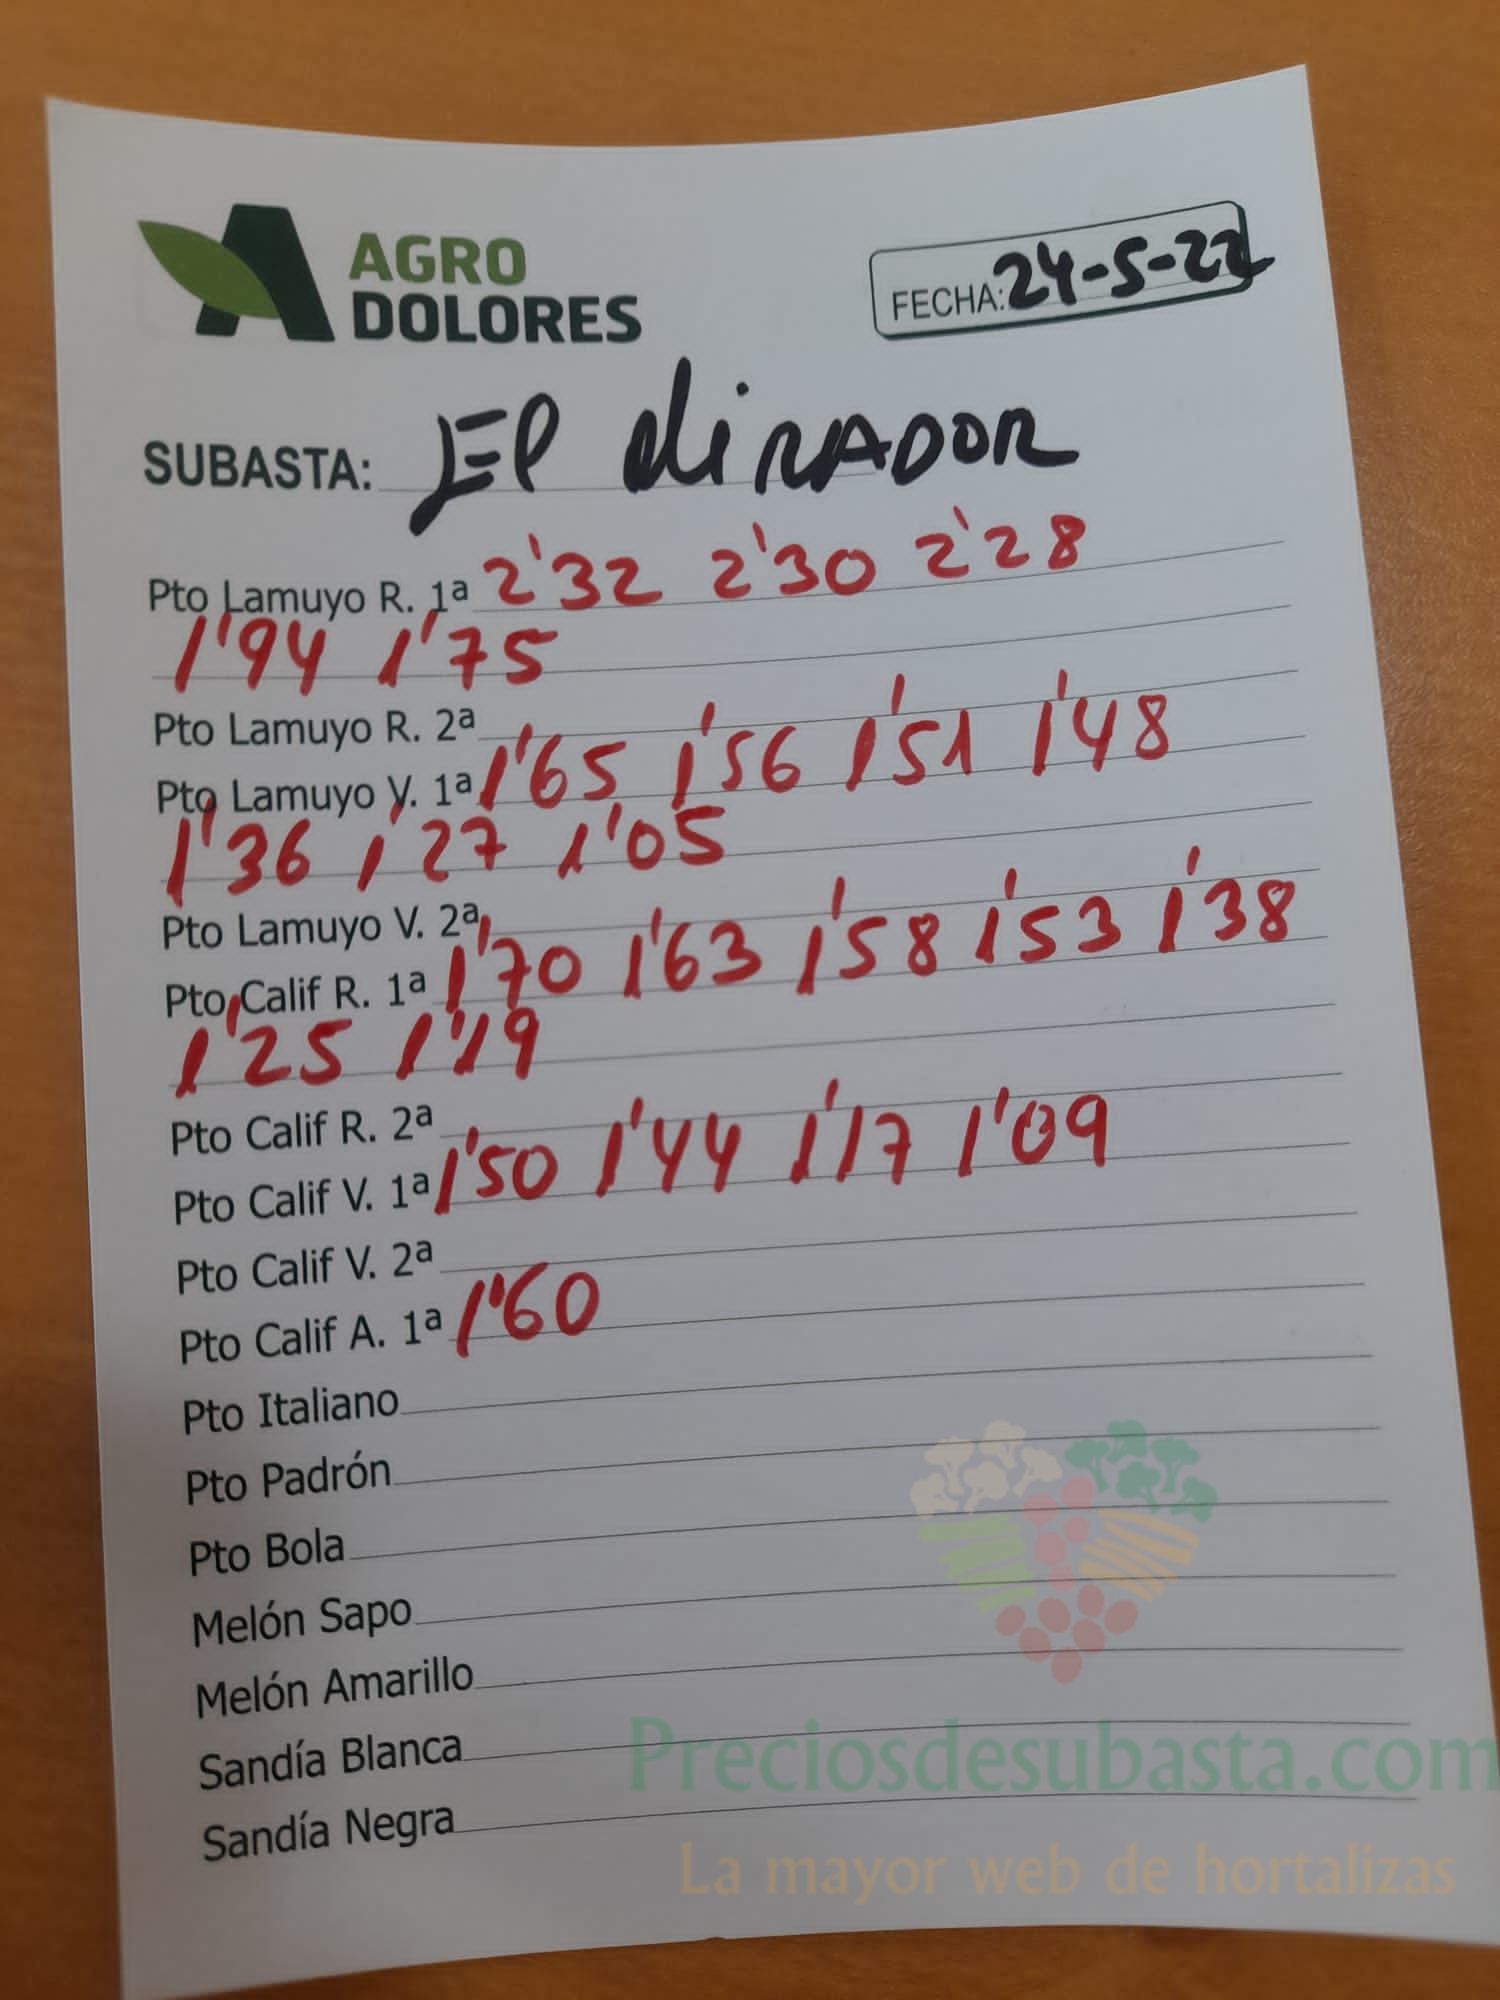 AGRO
DOLORES
FECHA: 24-5-22
SUBASTA: El Mirador
Pto Lamuyo R. 1ª 2'32 2'30 2'28
1'94 1'75
Pto Lamuyo R. 2ª
Pto Lamuyo V. 1ª 1'65 1'56 1'51 1'48
1'36 1'27 1'05
Pto Lamuyo V. 2ª
Pto Calif R. 1ª 1'70 1'63 1'58 1'53 1'38
1'25 1'19
Pto Calif R. 2ª
Pto Calif V. 1ª 1'50 1'44 1'17 1'09
Pto Calif V. 2ª
Pto Calif A. 1ª 1'60
Pto Italiano
Pto Padrón
Pto Bola
Melón Sapo
Melón Amarillo
Sandía Blanca
Sandía Negra
Preciosdesubasta.com
La mayor web de hortalizas